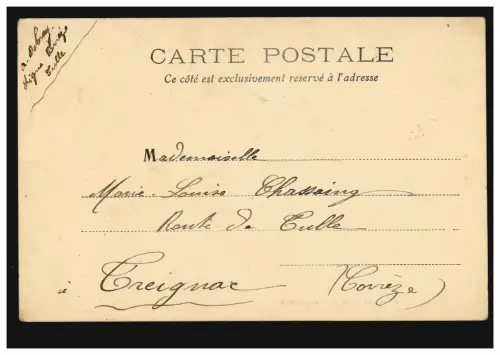 Tulle
CARTE POSTALE
Ce côté est exclusivement reservé à l'adresse
Mademoiselle
Marie-Louise Chassaing
Route de Tulle
à Treignac (Corrèze)